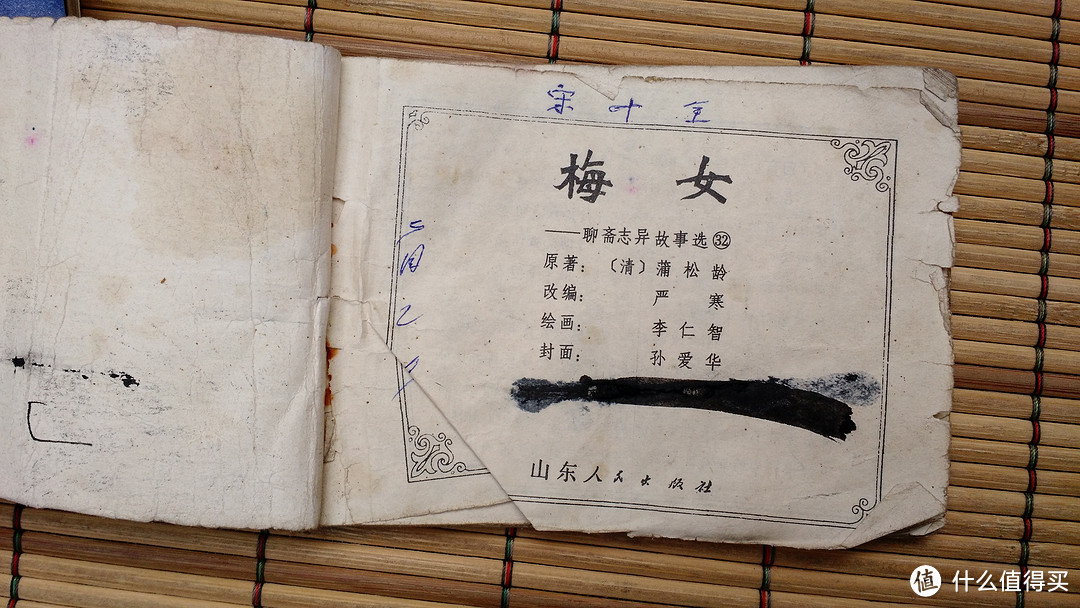 宋叶金
梅女
——聊斋志异故事选㉜
原著：〔清〕蒲松龄
改编：严寒
绘画：李仁智
封面：孙爱华
山东人民出版社
值 什么值得买